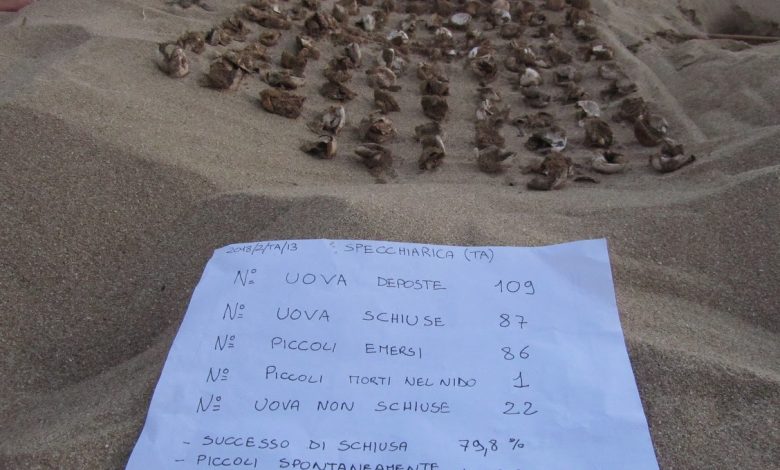 2018/2/TA/13 SPECCHIARICA (TA)
N° UOVA DEPOSTE 109
N° UOVA SCHIUSE 87
N° PICCOLI EMERSI 86
N° PICCOLI MORTI NEL NIDO 1
N° UOVA NON SCHIUSE 22
- SUCCESSO DI SCHIUSA 79,8 %
- PICCOLI SPONTANEAMENTE